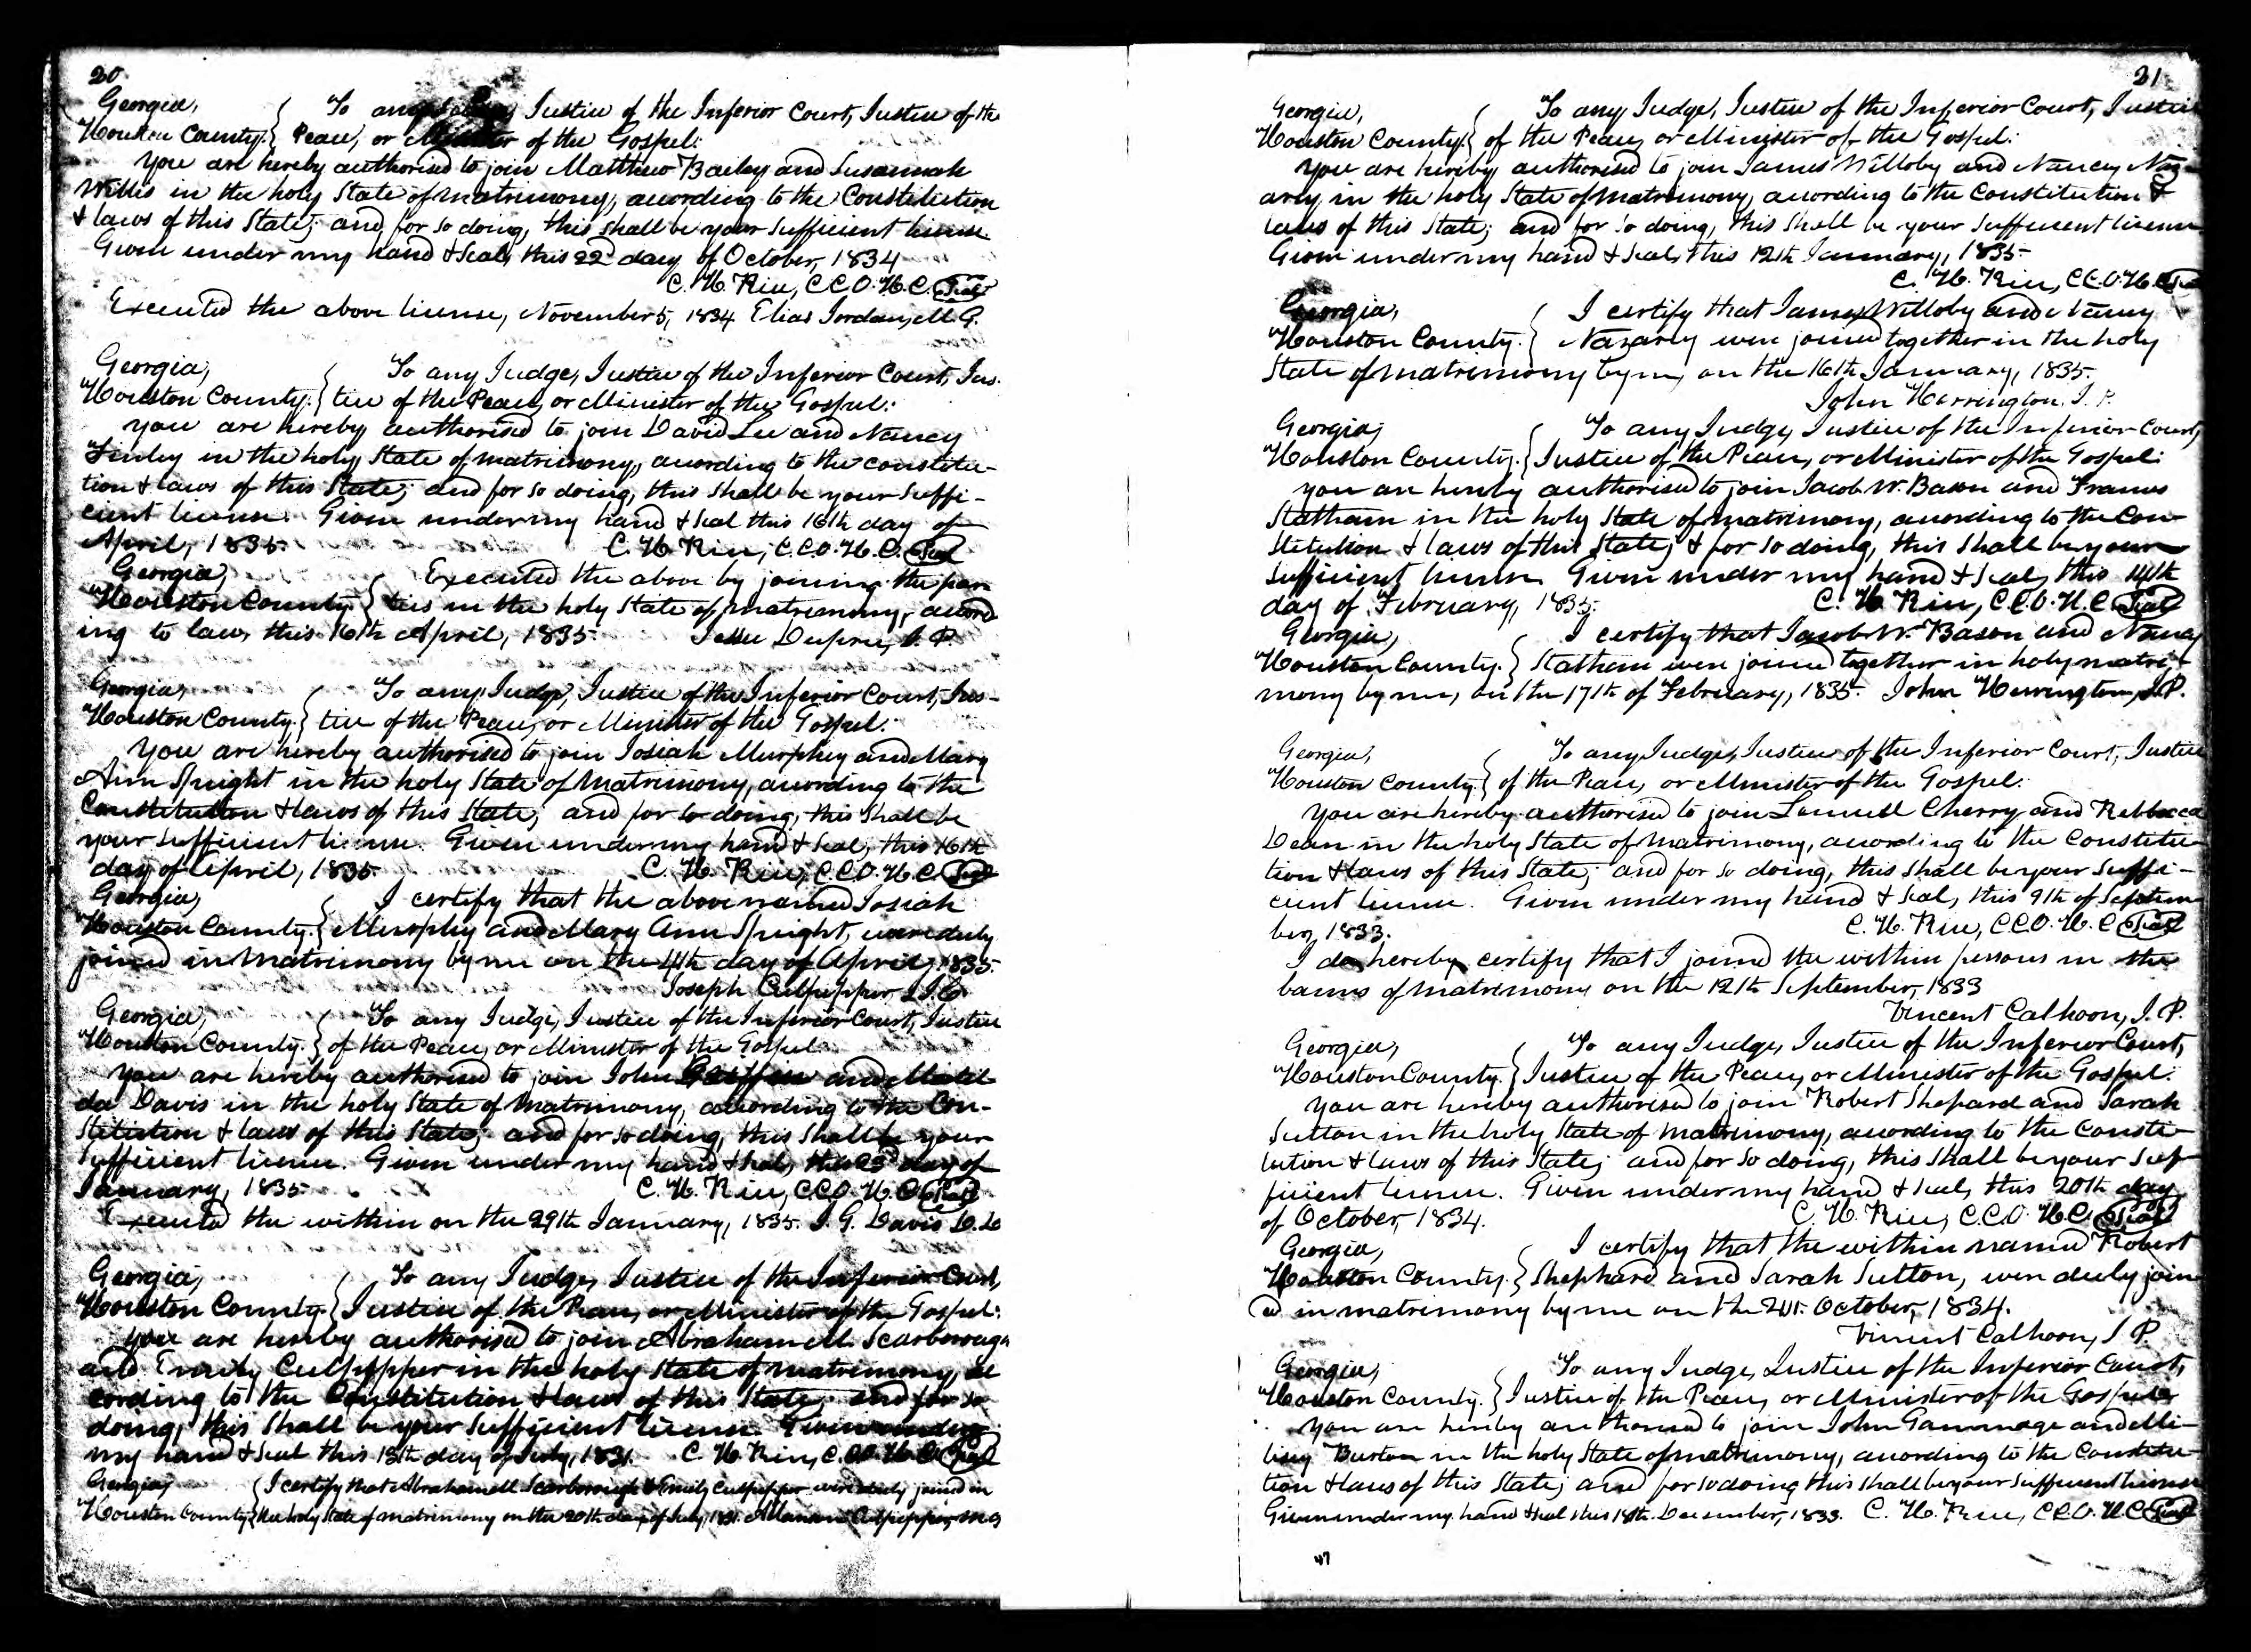 20
Georgia,
Houston County. } To any Justice of the Inferior Court, Justice of the
Peace, or Minister of the Gospel:
You are hereby authorised to join Matthew Bailey and Susannah
Willis in the holy State of matrimony, according to the Constitution
& laws of this State; and for so doing, this shall be your sufficient license
Given under my hand & Seal, this 22d day of October, 1834
C. H. Rice, C.C.O. H.C. (Seal)
Executed the above license, November 5, 1834 Elias Jordan, M.G.
Georgia,
Houston County. } To any Judge, Justice of the Inferior Court, Jus-
tice of the Peace, or Minister of the Gospel:
You are hereby authorised to join David Lee and Nancy
Finley in the holy State of matrimony, according to the constitu-
tion & laws of this State; and for so doing, this shall be your suffi-
cient license. Given under my hand & seal this 16th day of
April, 1835. C. H. Rice, C.C.O. H.C. (Seal)
Georgia,
Houston County } Executed the above by joining the par
ties in the holy State of matrimony, accord
ing to law, this 16th April, 1835 Jesse Dupree, J.P.
Georgia,
Houston County. } To any Judge, Justice of the Inferior Court, Jus-
tice of the Peace, or Minister of the Gospel:
You are hereby authorised to join Josiah Murphey and Mary
Ann Speight in the holy State of Matrimony, according to the
Constitution & laws of this State; and for so doing, this shall be
your sufficient license. Given under my hand & seal, this 16th
day of April, 1835 C. H. Rice, C.C.O. H.C. (Seal)
Georgia,
Houston County. } I certify that the above named Josiah
Murphy and Mary Ann Speight, were duly
joined in matrimony by me on the 4th day of April, 1835.
Joseph Culpepper J.I.C.
Georgia,
Houston County. } To any Judge, Justice of the Inferior Court, Justice
of the Peace, or Minister of the Gospel:
You are hereby authorised to join John and Matil-
da Davis in the holy State of matrimony, according to the Con-
stitution & laws of this State; and for so doing, this shall be your
sufficient license. Given under my hand & seal, this 23d day of
January, 1835. C. H. Rice, C.C.O. H.C. (Seal)
Executed the within on the 29th January, 1835. J. G. Davis
Georgia,
Houston County. } To any Judge, Justice of the Inferior Court,
Justice of the Peace, or Minister of the Gospel:
You are hereby authorised to join Abraham M. Scarborough
and Emily Culpepper in the holy State of matrimony, ac
cording to the Constitution & laws of this State; and for so
doing, this shall be your sufficient license. Given under
my hand & seal this 13th day of July, 1831. C. H. Rice, C.C.O. H.C. (Seal)
Georgia,
Houston County. } I certify that Abraham M. Scarborough & Emily Culpepper were duly joined in
the holy State of matrimony on the 20th day of July 1831. Culpepper, M.G
21
Georgia,
Houston County. } To any Judge, Justice of the Inferior Court, Justice
of the Peace, or Minister of the Gospel:
You are hereby authorised to join James Willoby and Nancy Naz-
arly in the holy State of matrimony, according to the Constitution &
laws of this State; and for so doing, this shall be your sufficient license
Given under my hand & seal, this 12th January, 1835.
C. H. Rice, C.C.O. H.C. (Seal)
Georgia,
Houston County. } I certify that James Willoby and Nancy
Nazarly were joined together in the holy
State of matrimony by me, on the 16th January, 1835.
John Herrington, J.P.
Georgia,
Houston County. } To any Judge, Justice of the Inferior Court,
Justice of the Peace, or Minister of the Gospel:
You are hereby authorised to join Jacob W. Bason and Frances
Statham in the holy State of matrimony, according to the Con-
stitution & laws of this State; & for so doing, this shall be your
sufficient license. Given under my hand & seal, this 14th
day of February, 1835. C. H. Rice, C.C.O. H.C. (Seal)
Georgia,
Houston County. } I certify that Jacob W. Bason and Nancy
Statham were joined together in holy matri-
mony by me, on the 17th of February, 1835. John Herrington, J.P.
Georgia,
Houston County. } To any Judge, Justice of the Inferior Court, Justice
of the Peace, or Minister of the Gospel:
You are hereby authorised to join Lemuell Cherry and Rebbecca
Dean in the holy State of matrimony, according to the Constitu-
tion & laws of this State; and for so doing, this shall be your suffi-
cient license. Given under my hand & seal, this 9th of Septem
ber, 1833. C. H. Rice, C.C.O. H.C. (Seal)
I do hereby certify that I joined the within persons in the
banns of matrimony on the 12th September, 1833
Vincent Calhoon, J.P.
Georgia,
Houston County. } To any Judge, Justice of the Inferior Court,
Justice of the Peace, or Minister of the Gospel:
You are hereby authorised to join Robert Shepard and Sarah
Sutton in the holy State of matrimony, according to the Consti-
tution & laws of this State; and for so doing, this shall be your suf
ficient license. Given under my hand & seal, this 20th day
of October, 1834. C. H. Rice, C.C.O. H.C. (Seal)
Georgia,
Houston County. } I certify that the within named Robert
Shephard and Sarah Sutton, were duly join
ed in matrimony by me on the 21st October, 1834.
Vincent Calhoon, J.P.
Georgia,
Houston County. } To any Judge, Justice of the Inferior Court,
Justice of the Peace, or Minister of the Gospel
You are hereby authorised to join John Gammage and
Burton in the holy State of matrimony, according to the Constitu-
tion & laws of this State; and for so doing this shall be your sufficient license
Given under my hand & seal this 18th December, 1833. C. H. Rice, C.C.O. H.C. (Seal)
47